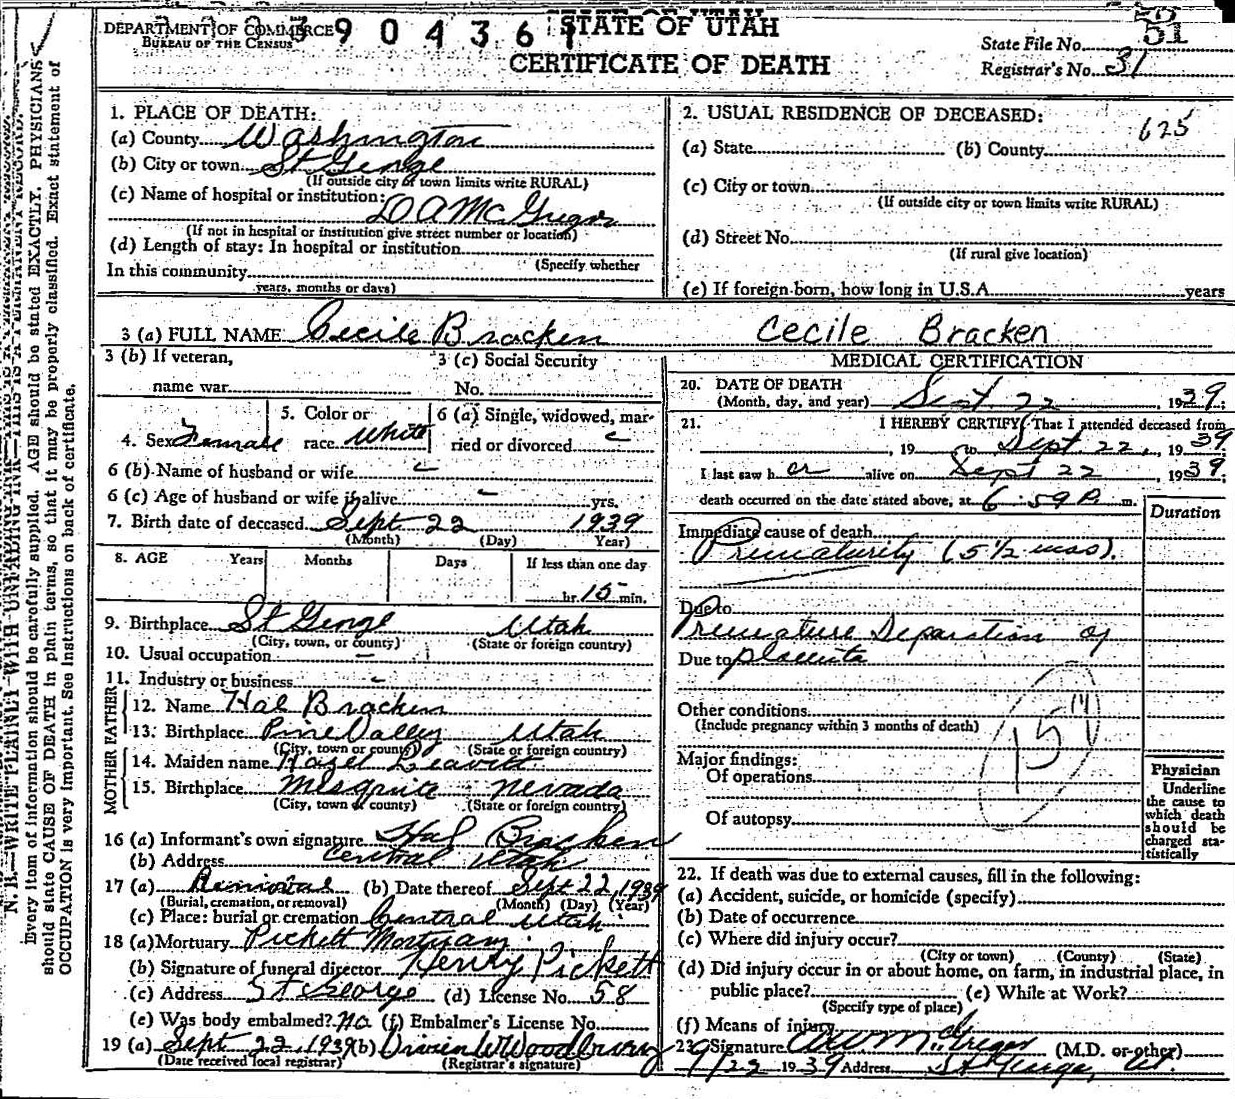 DEPARTMENT OF COMMERCE
BUREAU OF THE CENSUS
3 9 0 4 3 6 1
STATE OF UTAH
CERTIFICATE OF DEATH
State File No. 51
Registrar's No. 31
1. PLACE OF DEATH:
(a) County Washington
(b) City or town St George
(If outside city or town limits write RURAL)
(c) Name of hospital or institution:
D A McGregor
(If not in hospital or institution give street number or location)
(d) Length of stay: In hospital or institution
(Specify whether
In this community
years, months or days)
2. USUAL RESIDENCE OF DECEASED:
625
(a) State (b) County
(c) City or town
(If outside city or town limits write RURAL)
(d) Street No.
(If rural give location)
(e) If foreign born, how long in U.S.A. years
3 (a) FULL NAME Cecile Bracken Cecile Bracken
3 (b) If veteran,
name war
3 (c) Social Security
No.
4. Sex Female
5. Color or
race White
6 (a) Single, widowed, mar-
ried or divorced
6 (b) Name of husband or wife -
6 (c) Age of husband or wife if alive - yrs.
7. Birth date of deceased Sept 22 1939
(Month) (Day) Year)
8. AGE Years Months Days If less than one day
hr. 15 min.
9. Birthplace St George Utah
(City, town, or county) (State or foreign country)
10. Usual occupation -
11. Industry or business -
FATHER
12. Name Hal Bracken
13. Birthplace Pine Valley Utah
(City, town or county) (State or foreign country)
MOTHER
14. Maiden name Hazel Leavitt
15. Birthplace Mesquite Nevada
(City, town or county) (State or foreign country)
16 (a) Informant's own signature Hal Bracken
(b) Address Central Utah
17 (a) Removal (b) Date thereof Sept 22, 1939
(Burial, cremation, or removal) (Month) (Day) (Year)
(c) Place: burial or cremation Central Utah
18 (a) Mortuary Pickett Mortuary
(b) Signature of funeral director Henry Pickett
(c) Address St George (d) License No. 58
(e) Was body embalmed? No (f) Embalmer's License No.
19 (a) Sept 22, 1939 (b) W Woodbury
(Date received local registrar) (Registrar's signature)
MEDICAL CERTIFICATION
20. DATE OF DEATH
(Month, day, and year) Sept. 22, 1939
21. I HEREBY CERTIFY, That I attended deceased from
, 19 to Sept. 22, 1939
I last saw her alive on Sept 22, 1939;
death occurred on the date stated above, at 6:59 P. m.
Duration
Immediate cause of death
Prematurity (5 1/2 mos).
Due to
Premature Separation of
Due to placenta
Other conditions
(Include pregnancy within 3 months of death)
15
Major findings:
Of operations
Of autopsy
Physician
Underline
the cause to
which death
should be
charged sta-
tistically
22. If death was due to external causes, fill in the following:
(a) Accident, suicide, or homicide (specify)
(b) Date of occurrence
(c) Where did injury occur?
(City or town) (County) (State)
(d) Did injury occur in or about home, on farm, in industrial place, in
public place? (e) While at Work?
(Specify type of place)
(f) Means of injury
23. Signature McGregor (M.D. or other)
9/22 1939 Address St George, Ut.
N. B.—WRITE PLAINLY WITH UNFADING INK—THIS IS A PERMANENT RECORD.
Every item of information should be carefully supplied. AGE should be stated EXACTLY. PHYSICIANS
should state CAUSE OF DEATH in plain terms, so that it may be properly classified. Exact statement of
OCCUPATION is very important. See instructions on back of certificate.